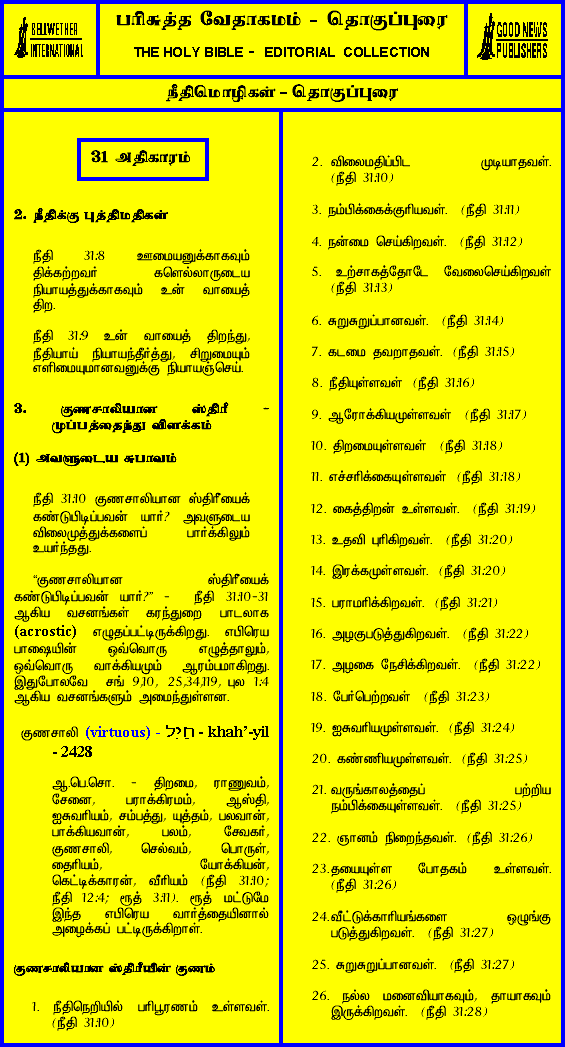 BELLWETHER
INTERNATIONAL
பரிசுத்த வேதாகமம் - தொகுப்புரை
THE HOLY BIBLE - EDITORIAL COLLECTION
GOOD NEWS
PUBLISHERS
நீதிமொழிகள் - தொகுப்புரை
31 அதிகாரம்
2. நீதிக்கு புத்திமதிகள்
நீதி 31:8 ஊமையனுக்காகவும்
திக்கற்றவர் களெல்லாருடைய
நியாயத்துக்காகவும் உன் வாயைத்
திற.
நீதி 31:9 உன் வாயைத் திறந்து,
நீதியாய் நியாயந்தீர்த்து, சிறுமையும்
எளிமையுமானவனுக்கு நியாயஞ்செய்.
3. குணசாலியான ஸ்திரீ -
முப்பத்தைந்து விளக்கம்
(1) அவளுடைய சுபாவம்
நீதி 31:10 குணசாலியான ஸ்திரீயைக்
கண்டுபிடிப்பவன் யார்? அவளுடைய
விலைமுத்துக்களைப் பார்க்கிலும்
உயர்ந்தது.
“குணசாலியான ஸ்திரீயைக்
கண்டுபிடிப்பவன் யார்?” - நீதி 31:10-31
ஆகிய வசனங்கள் கரந்துறை பாடலாக
(acrostic) எழுதப்பட்டிருக்கிறது. எபிரெய
பாஷையின் ஒவ்வொரு எழுத்தாலும்,
ஒவ்வொரு வாக்கியமும் ஆரம்பமாகிறது.
இதுபோலவே சங் 9,10, 25,34,119, புல 1:4
ஆகிய வசனங்களும் அமைந்துள்ளன.
குணசாலி (virtuous) - חַיִל - khah’-yil
- 2428
ஆ.பெ.சொ. - திறமை, ராணுவம்,
சேனை, பராக்கிரமம், ஆஸ்தி,
ஐசுவரியம், சம்பத்து, யுத்தம், பலவான்,
பாக்கியவான், பலம், சேவகர்,
குணசாலி, செல்வம், பொருள்,
தைரியம், யோக்கியன்,
கெட்டிக்காரன், வீரியம் (நீதி 31:10;
நீதி 12:4; ரூத் 3:11). ரூத் மட்டுமே
இந்த எபிரெய வார்த்தையினால்
அழைக்கப் பட்டிருக்கிறாள்.
குணசாலியான ஸ்திரீயின் குணம்
1. நீதிநெறியில் பரிபூரணம் உள்ளவள்.
(நீதி 31:10)
2. விலைமதிப்பிட முடியாதவள்.
(நீதி 31:10)
3. நம்பிக்கைக்குரியவள். (நீதி 31:11)
4. நன்மை செய்கிறவள். (நீதி 31:12)
5. உற்சாகத்தோடே வேலைசெய்கிறவள்
(நீதி 31:13)
6. சுறுசுறுப்பானவள். (நீதி 31:14)
7. கடமை தவறாதவள். (நீதி 31:15)
8. நீதியுள்ளவள் (நீதி 31:16)
9. ஆரோக்கியமுள்ளவள் (நீதி 31:17)
10. திறமையுள்ளவள் (நீதி 31:18)
11. எச்சரிக்கையுள்ளவள் (நீதி 31:18)
12. கைத்திறன் உள்ளவள். (நீதி 31:19)
13. உதவி புரிகிறவள். (நீதி 31:20)
14. இரக்கமுள்ளவள். (நீதி 31:20)
15. பராமரிக்கிறவள். (நீதி 31:21)
16. அழகுபடுத்துகிறவள். (நீதி 31:22)
17. அழகை நேசிக்கிறவள். (நீதி 31:22)
18. பேர்பெற்றவள் (நீதி 31:23)
19. ஐசுவரியமுள்ளவள். (நீதி 31:24)
20. கண்ணியமுள்ளவள். (நீதி 31:25)
21. வருங்காலத்தைப் பற்றிய
நம்பிக்கையுள்ளவள். (நீதி 31:25)
22. ஞானம் நிறைந்தவள். (நீதி 31:26)
23.தயையுள்ள போதகம் உள்ளவள்.
(நீதி 31:26)
24.வீட்டுக்காரியங்களை ஒழுங்கு
படுத்துகிறவள். (நீதி 31:27)
25. சுறுசுறுப்பானவள். (நீதி 31:27)
26. நல்ல மனைவியாகவும், தாயாகவும்
இருக்கிறவள். (நீதி 31:28)